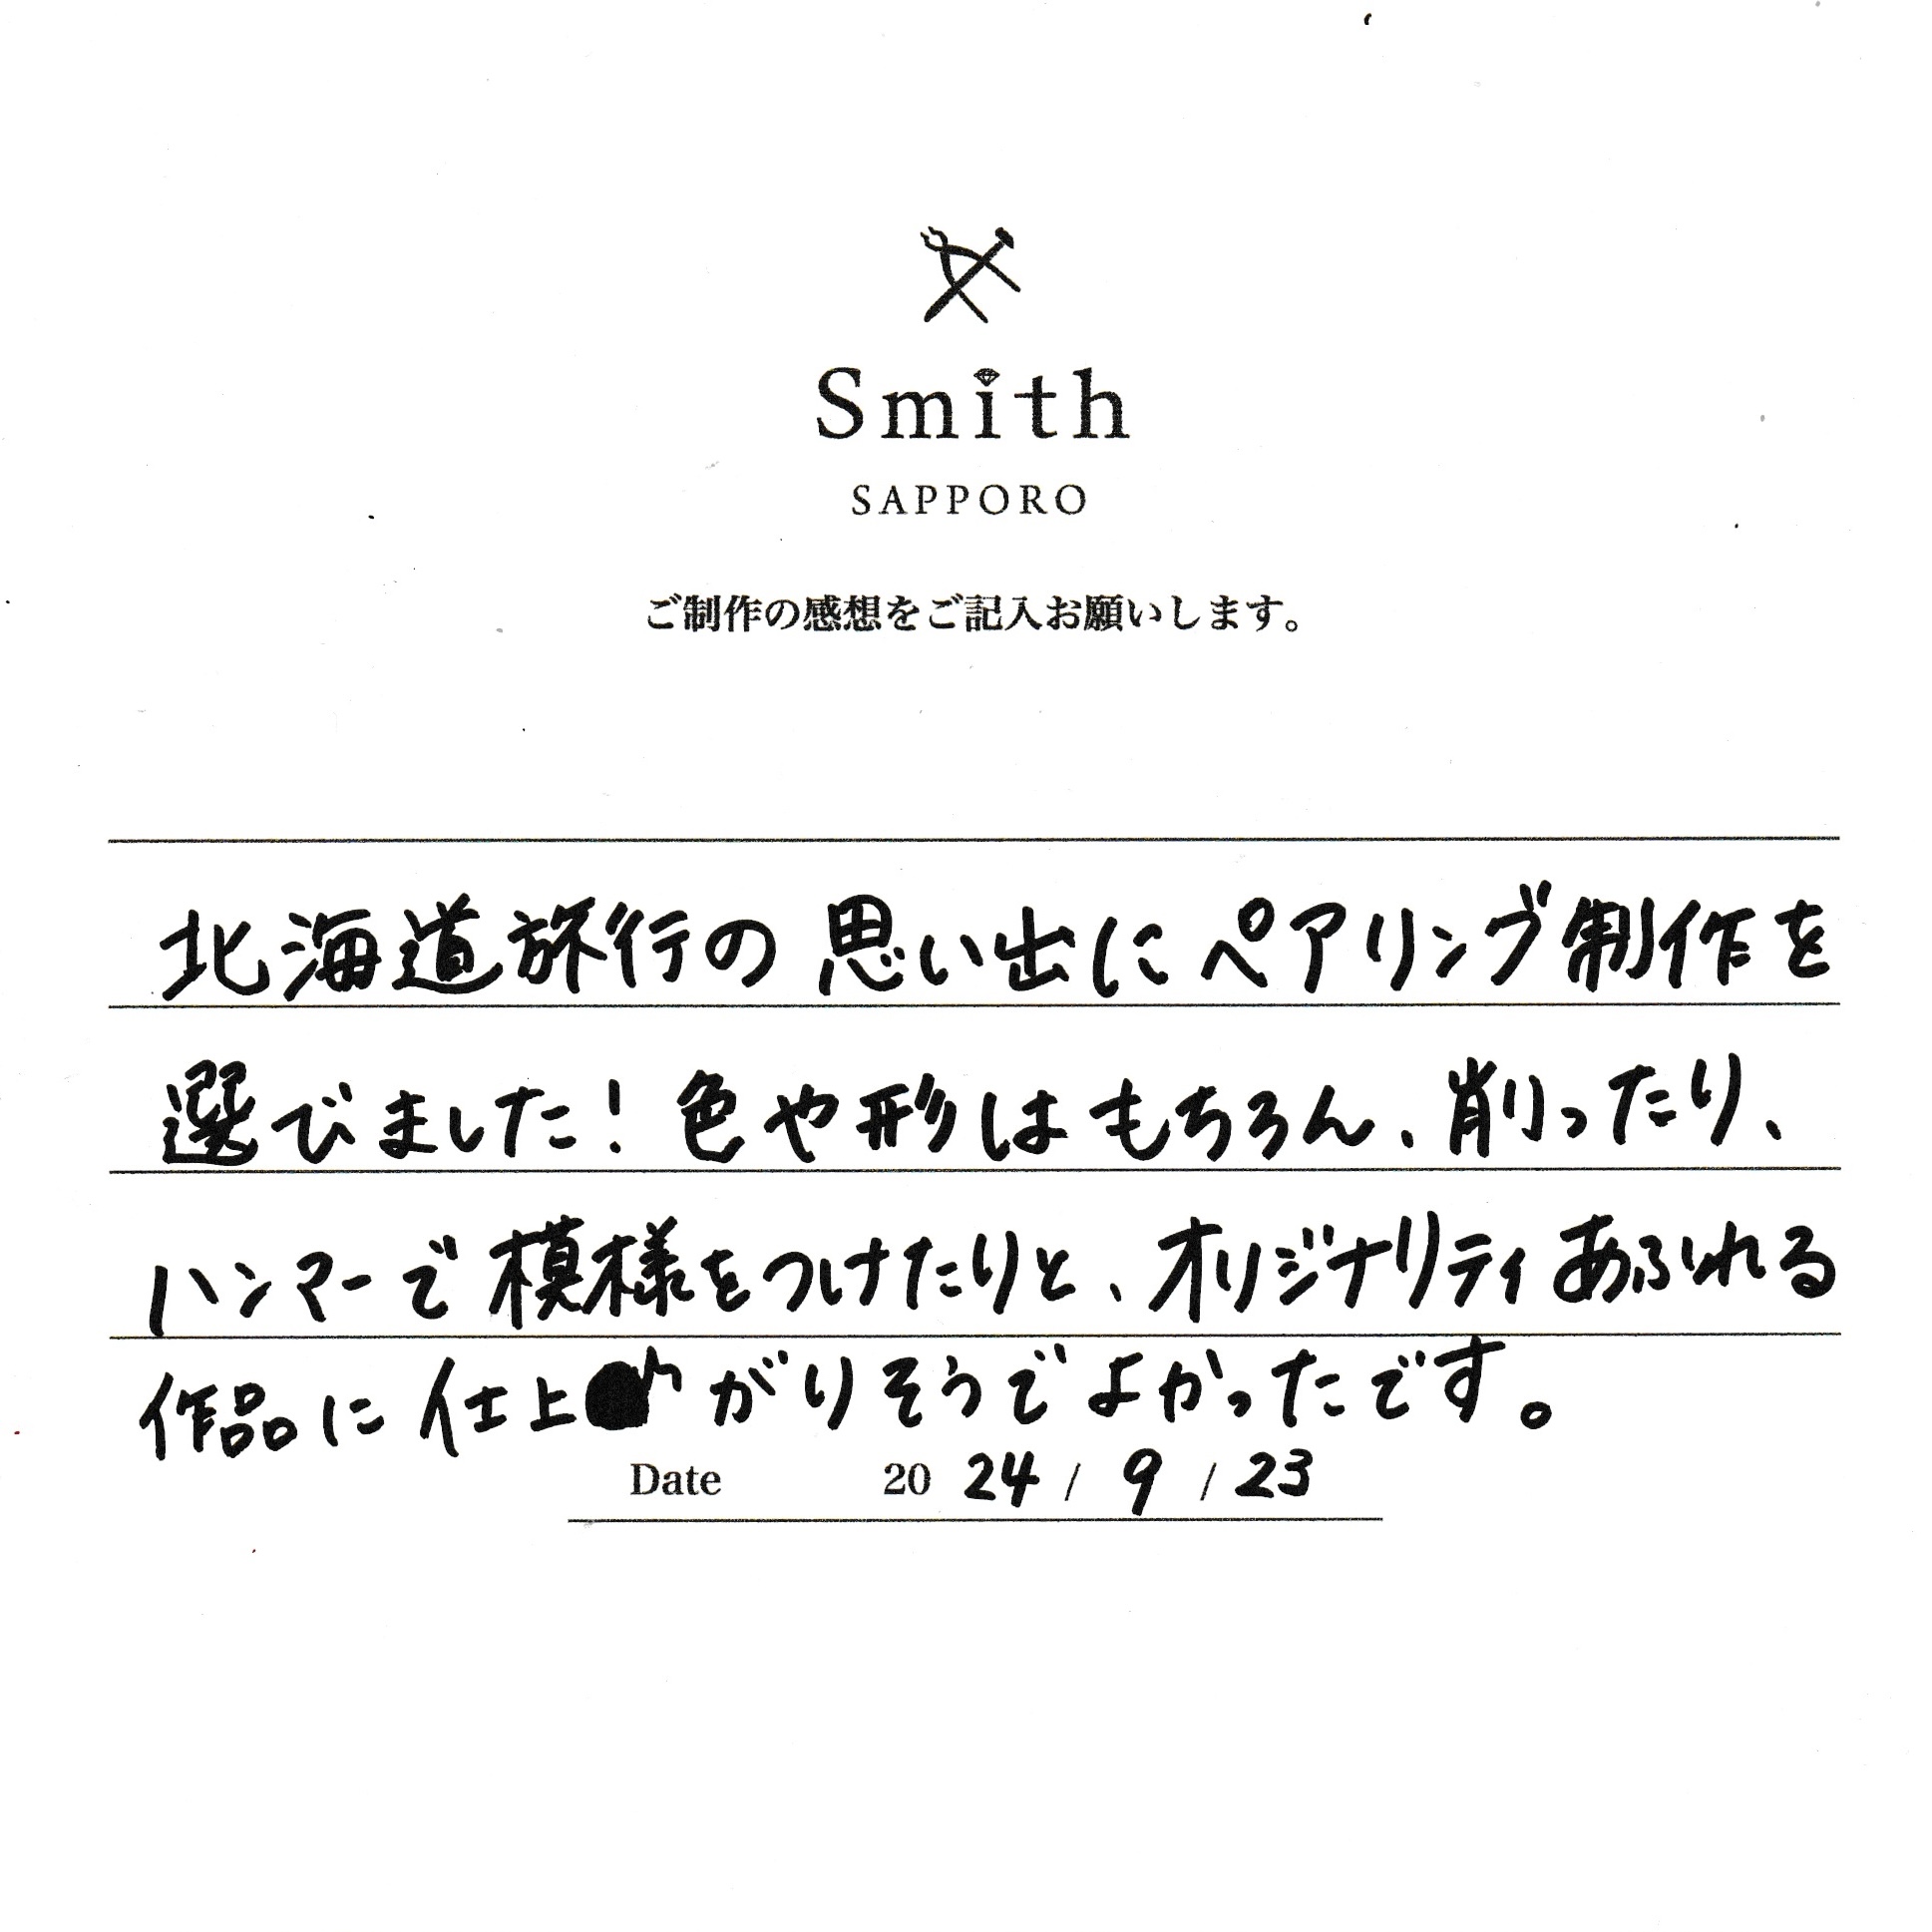 Smith
SAPPORO
ご制作の感想をご記入お願いします。
北海道旅行の思い出にペアリング制作を
選びました！色や形はもちろん、削ったり、
ハンマーで模様をつけたりと、オリジナリティあふれる
作品に仕上がりそうでよかったです。
Date 2024 / 9 / 23